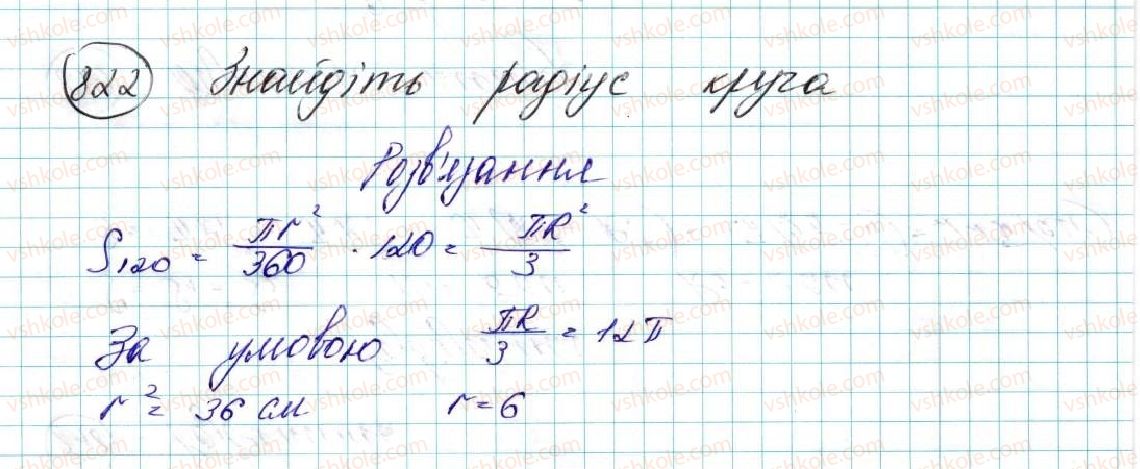 822 Знайдіть радіус круга
Розв'язання
S₁₂₀ = πr²/360 · 120 = πR²/3
За умовою πR/3 = 12π
r² = 36 см r = 6